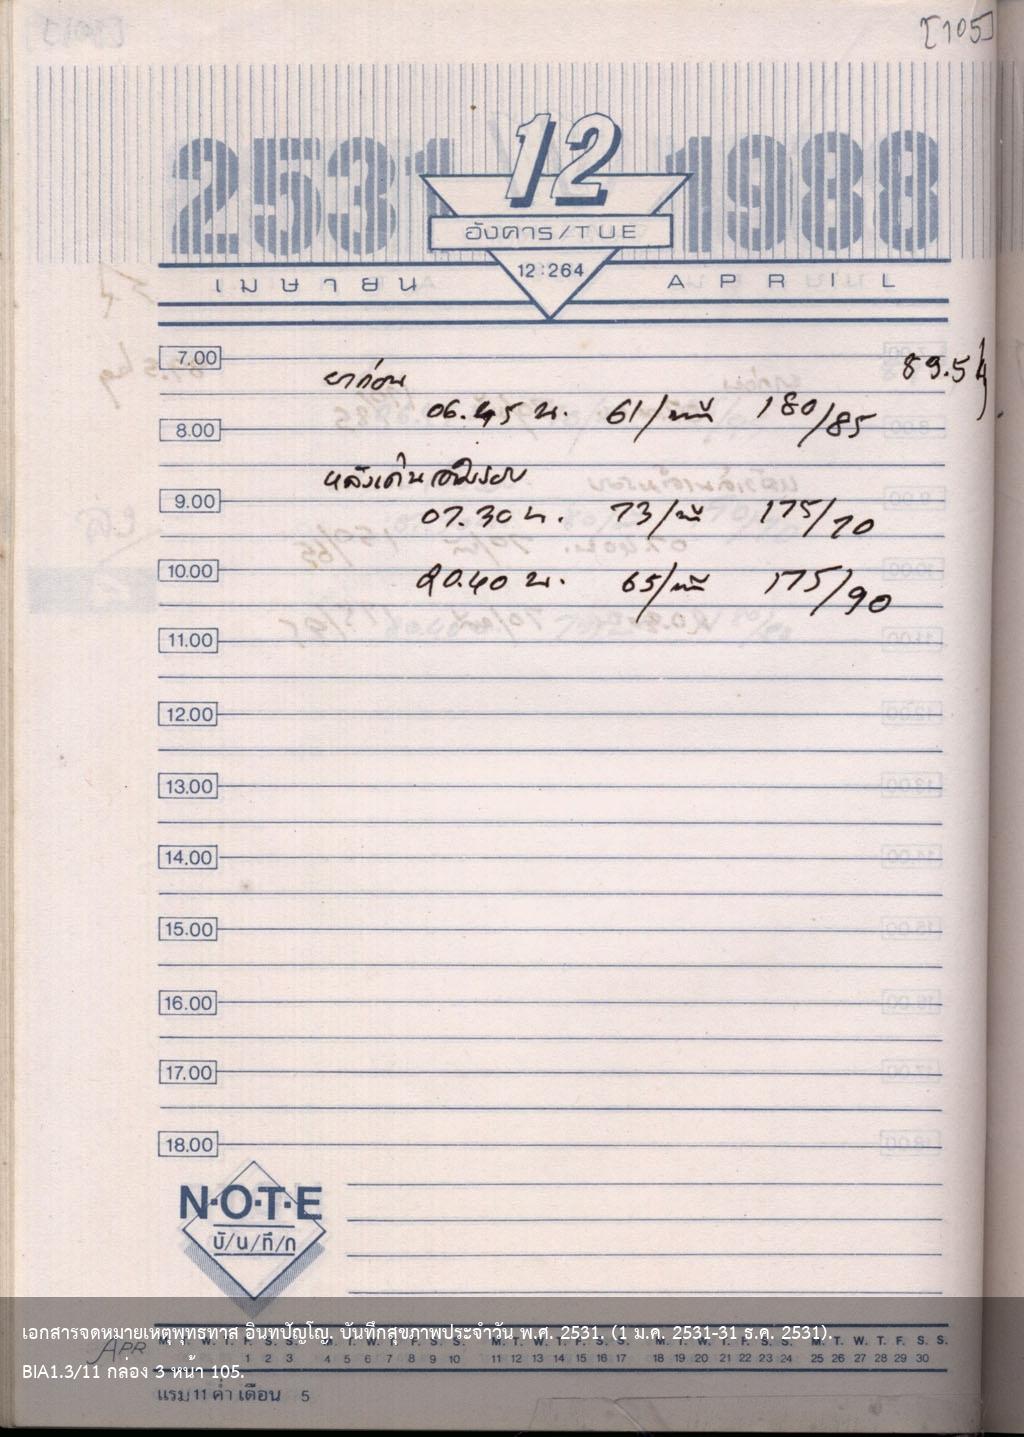 [105]
2531 12 1988
อังคาร/TUE
12:264
เมษายน APRIL
7.00
89.5
ยาก่อน
06.45 น. 61/นาที 180/85
8.00
หลังเดิน
9.00
07.30 น. 73/นาที 175/70
10.00
20.40 น. 65/นาที 175/90
11.00
12.00
13.00
14.00
15.00
16.00
17.00
18.00
N·O·T·E
บั/น/ทึ/ก
เอกสารจดหมายเหตุพุทธทาส อินทปัญโญ. บันทึกสุขภาพประจำวัน พ.ศ. 2531. (1 ม.ค. 2531-31 ธ.ค. 2531).
APR M. T. W. T. F. S. S. M. T. W. T. F. S. S.
1 2 3 4 5 6 7 8 9 10 11 12 13 14 15 16 17 18 19 20 21 22 23 24 25 26 27 28 29 30
BIA1.3/11 กล่อง 3 หน้า 105.
แรม 11 ค่ำ เดือน 5